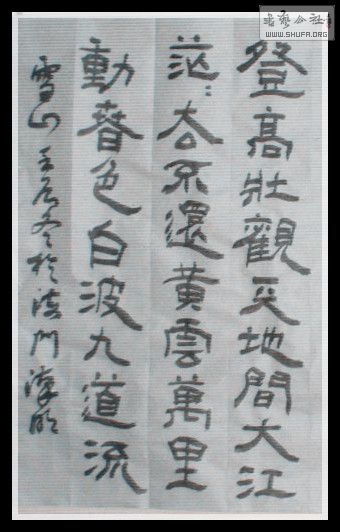 登高壯觀天地間大江
茫〻去不還黃雲萬里
動春色白波九道流
雪山 壬辰冬於門
書藝公社
WWW.SHUFA.ORG